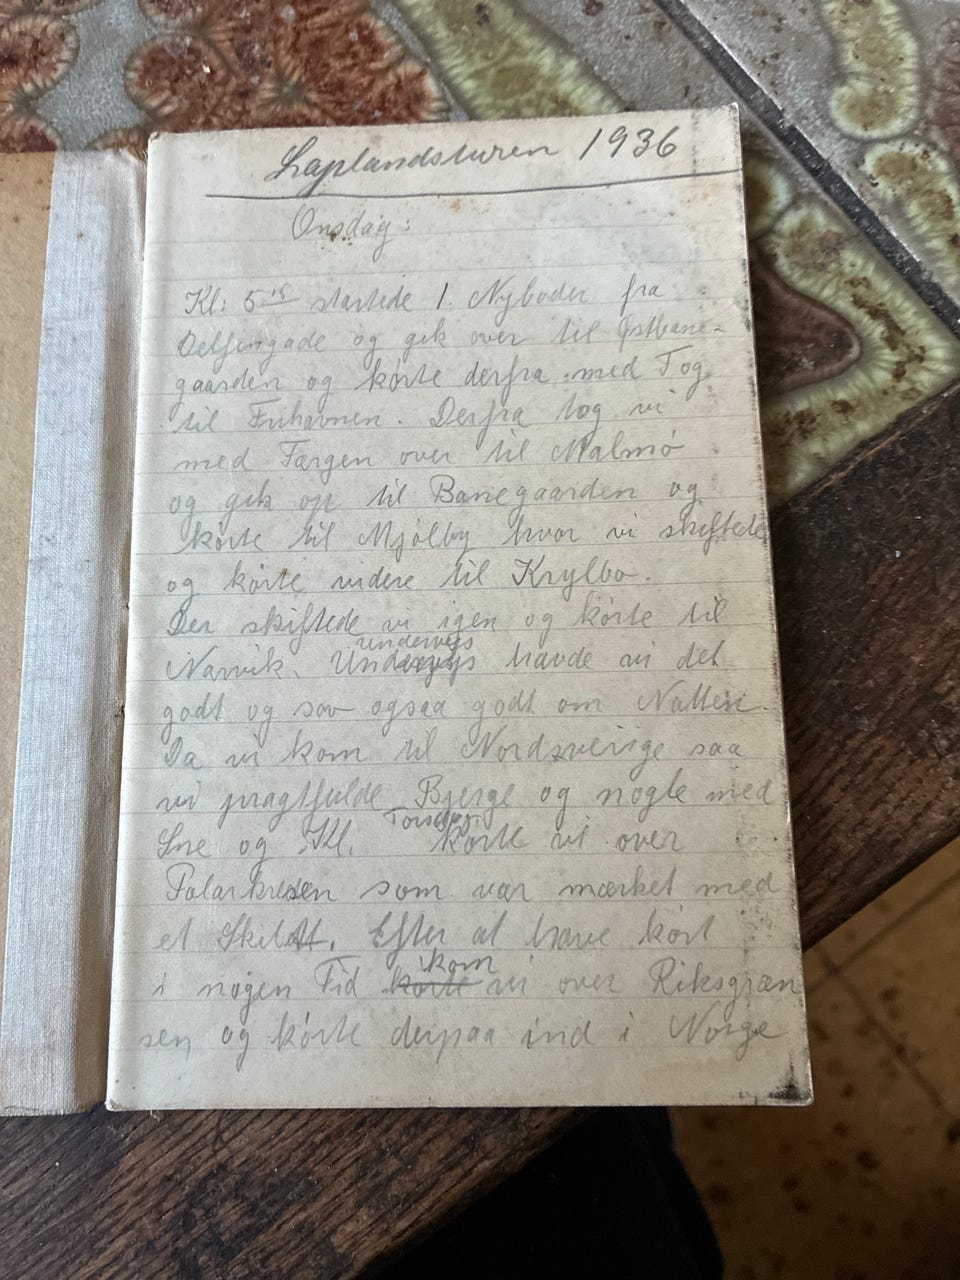 Laplandsturen 1936
Onsdag:
Kl: 5 startede 1. Nyboder fra
Delfingade og gik over til Østbane-
gaarden og kørte derfra med Tog
til Frihavnen. Derfra tog vi
med Færgen over til Malmø
og gik op til Banegaarden og
kørte til Mjølby hvor vi skiftede
og kørte videre til Krylbo.
Der skiftede vi igen og kørte til
undervejs
Narvik. havde vi det
godt og sov ogsaa godt om Natten.
Da vi kom til Nordsverige saa
vi pragtfulde Bjerge og nogle med
Torsdag
Sne og Kl. kørte vi over
Polarkresen som var mærket med
et Skildt. Efter at have kørt
kom
i nogen Tid kørte vi over Riksgræn
sen og kørte derpaa ind i Norge